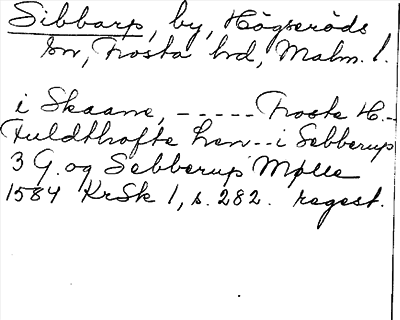 Sibbarp, by, Högseröds
sn, Frosta hd, Malm. l.
i Skaane, ----- Froste H.-
Fuldthofte Len -- i Sebberup
3 G. og Sebberup Mølle
1584 KrSk 1, s. 282. regest.